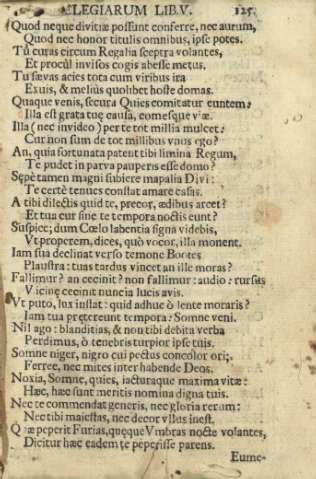 ELEGIARUM LIB. V. 125.
Quod neque divitiæ possunt conferre, nec aurum,
Quod nec honor titulis omnibus, ipse potes.
Tu curas circum Regalia sceptra volantes,
Et procùl invisos cogis abesse metus.
Tu sævas acies tota cum viribus ira
Exuis, & meliùs quolibet hoste domas.
Quaque venis, secura Quies comitatur euntem:
Illa est grata tuæ causa, comesque viæ.
Illa (nec invideo) per te tot millia mulcet:
Cur non sum de tot millibus unus ego?
An, quia fortunata patent tibi limina Regum,
Te pudet in parva pauperis esse domo?
Sępè tamen magni subiere mapalia Divi:
Te certè tenues constat amare casas.
A tibi dilectis quid te, precor, ædibus arcet?
Et tua cur sine te tempora noctis eunt?
Suspice; dum Cœlo labentia signa videbis,
Vt properem, dices, quò vocor, illa monent.
Iam sua declinat verso temone Bootes
Plaustra: tuas tardus vincet an ille moras?
Fallimur? an cecinit? non fallimur: audio: rursus
Vicinę cecinit nuncia lucis avis.
Vt puto, lux instat: quid adhuc ô lente moraris?
Iam tua prętereunt tempora: Somne veni.
Nil ago: blanditias, & non tibi debita verba
Perdimus, ò tenebris turpior ipse tuis.
Somne niger, nigro cui pectus concolor ori;
Ferree, nec mites inter habende Deos.
Noxia, Somne, quies, iacturaque maxima vitæ:
Hæc, hæc sunt meritis nomina digna tuis.
Nec te commendat generis, nec gloria rerum:
Nec tibi maiestas, nec decor ullus inest.
Quæ peperit Furias, quęque Vmbras nocte volantes,
Dicitur hæc eadem te peperisse parens.
Eume-